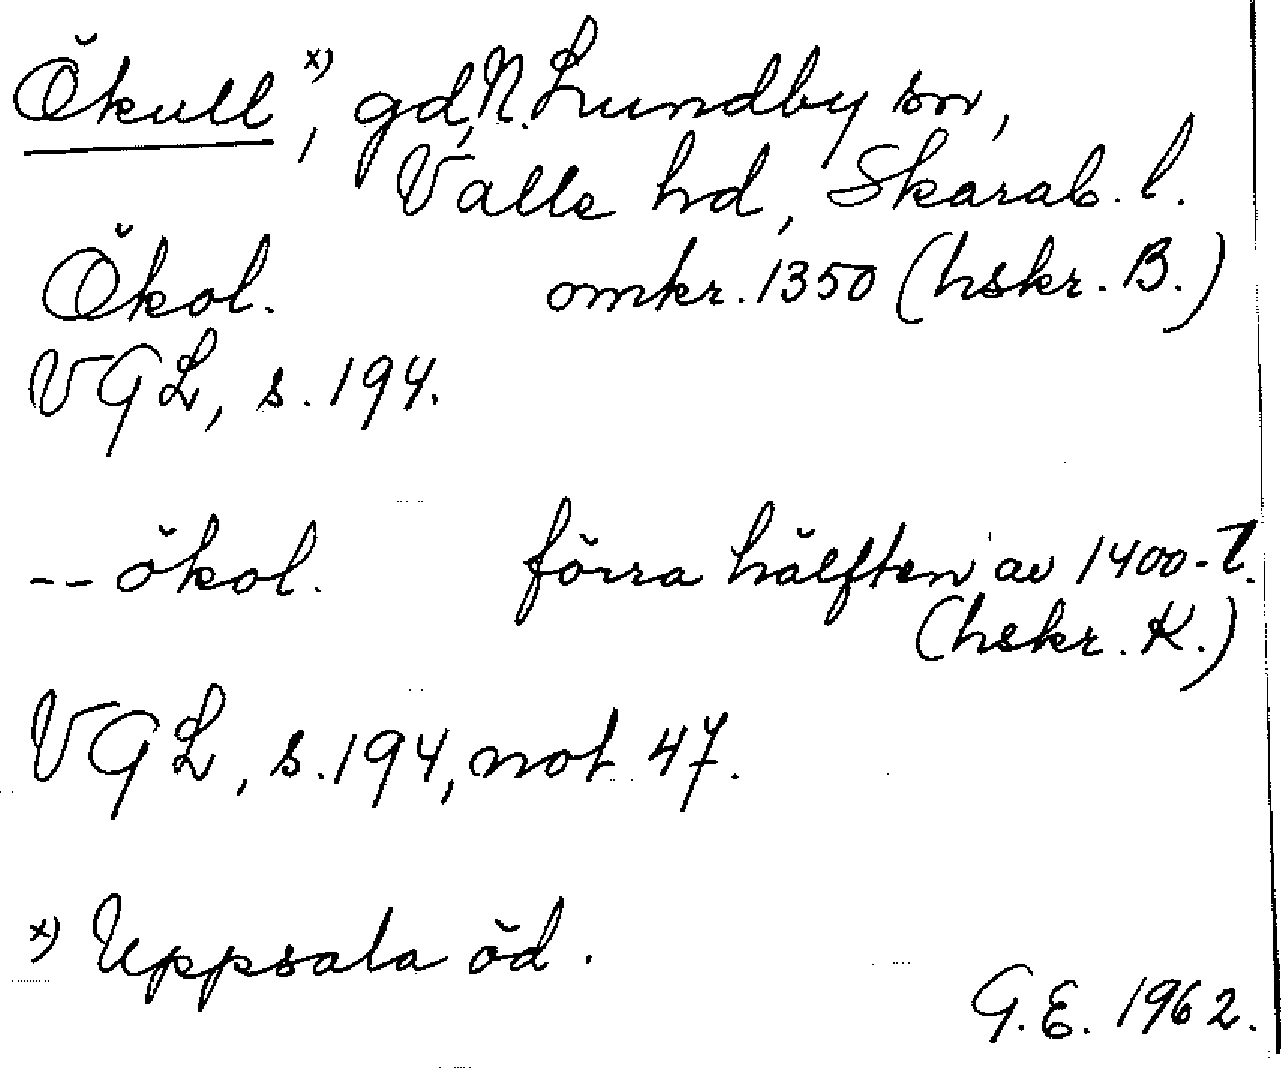 Ökull x), gd, N. Lundby sn,
Valle hd, Skarab. l.
Ökol. omkr. 1350 (hskr. B.)
VGL, s. 194.
-- ökol. förra hälften av 1400-t.
(hskr. K.)
VGL, s. 194, not 47.
x) Uppsala öd.
G.E. 1962.